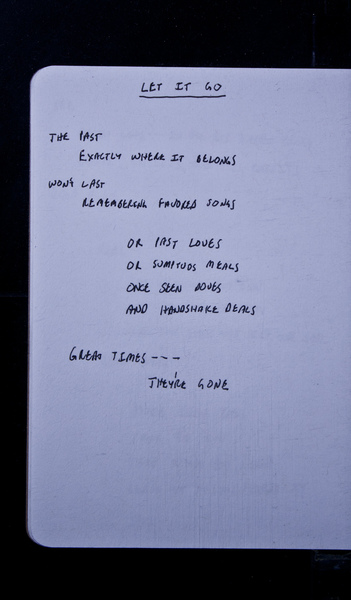 LET IT GO
THE PAST
EXACTLY WHERE IT BELONGS
WON'T LAST
REMEMBERING FAVORED SONGS
OR PAST LOVES
OR SUMPTUOS MEALS
ONCE SEEN DOVES
AND HANDSHAKE DEALS
GREAT TIMES ---
THEY'RE GONE